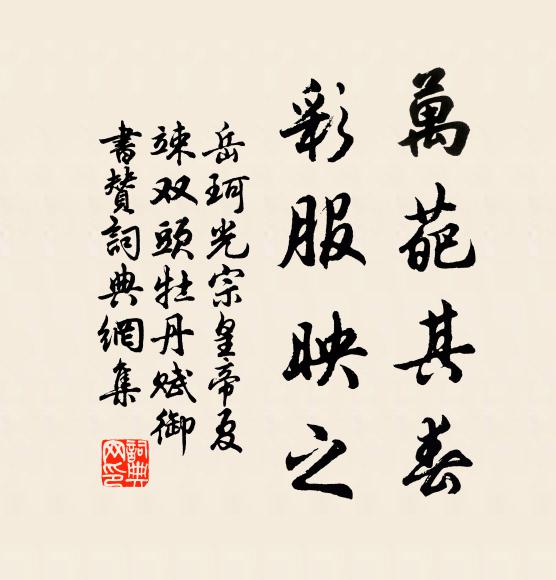 萬葩其春
彩服映之
岳珂光宗皇帝夏
竦双頭牡丹赋御
書贊詞典網集
詞典
网印